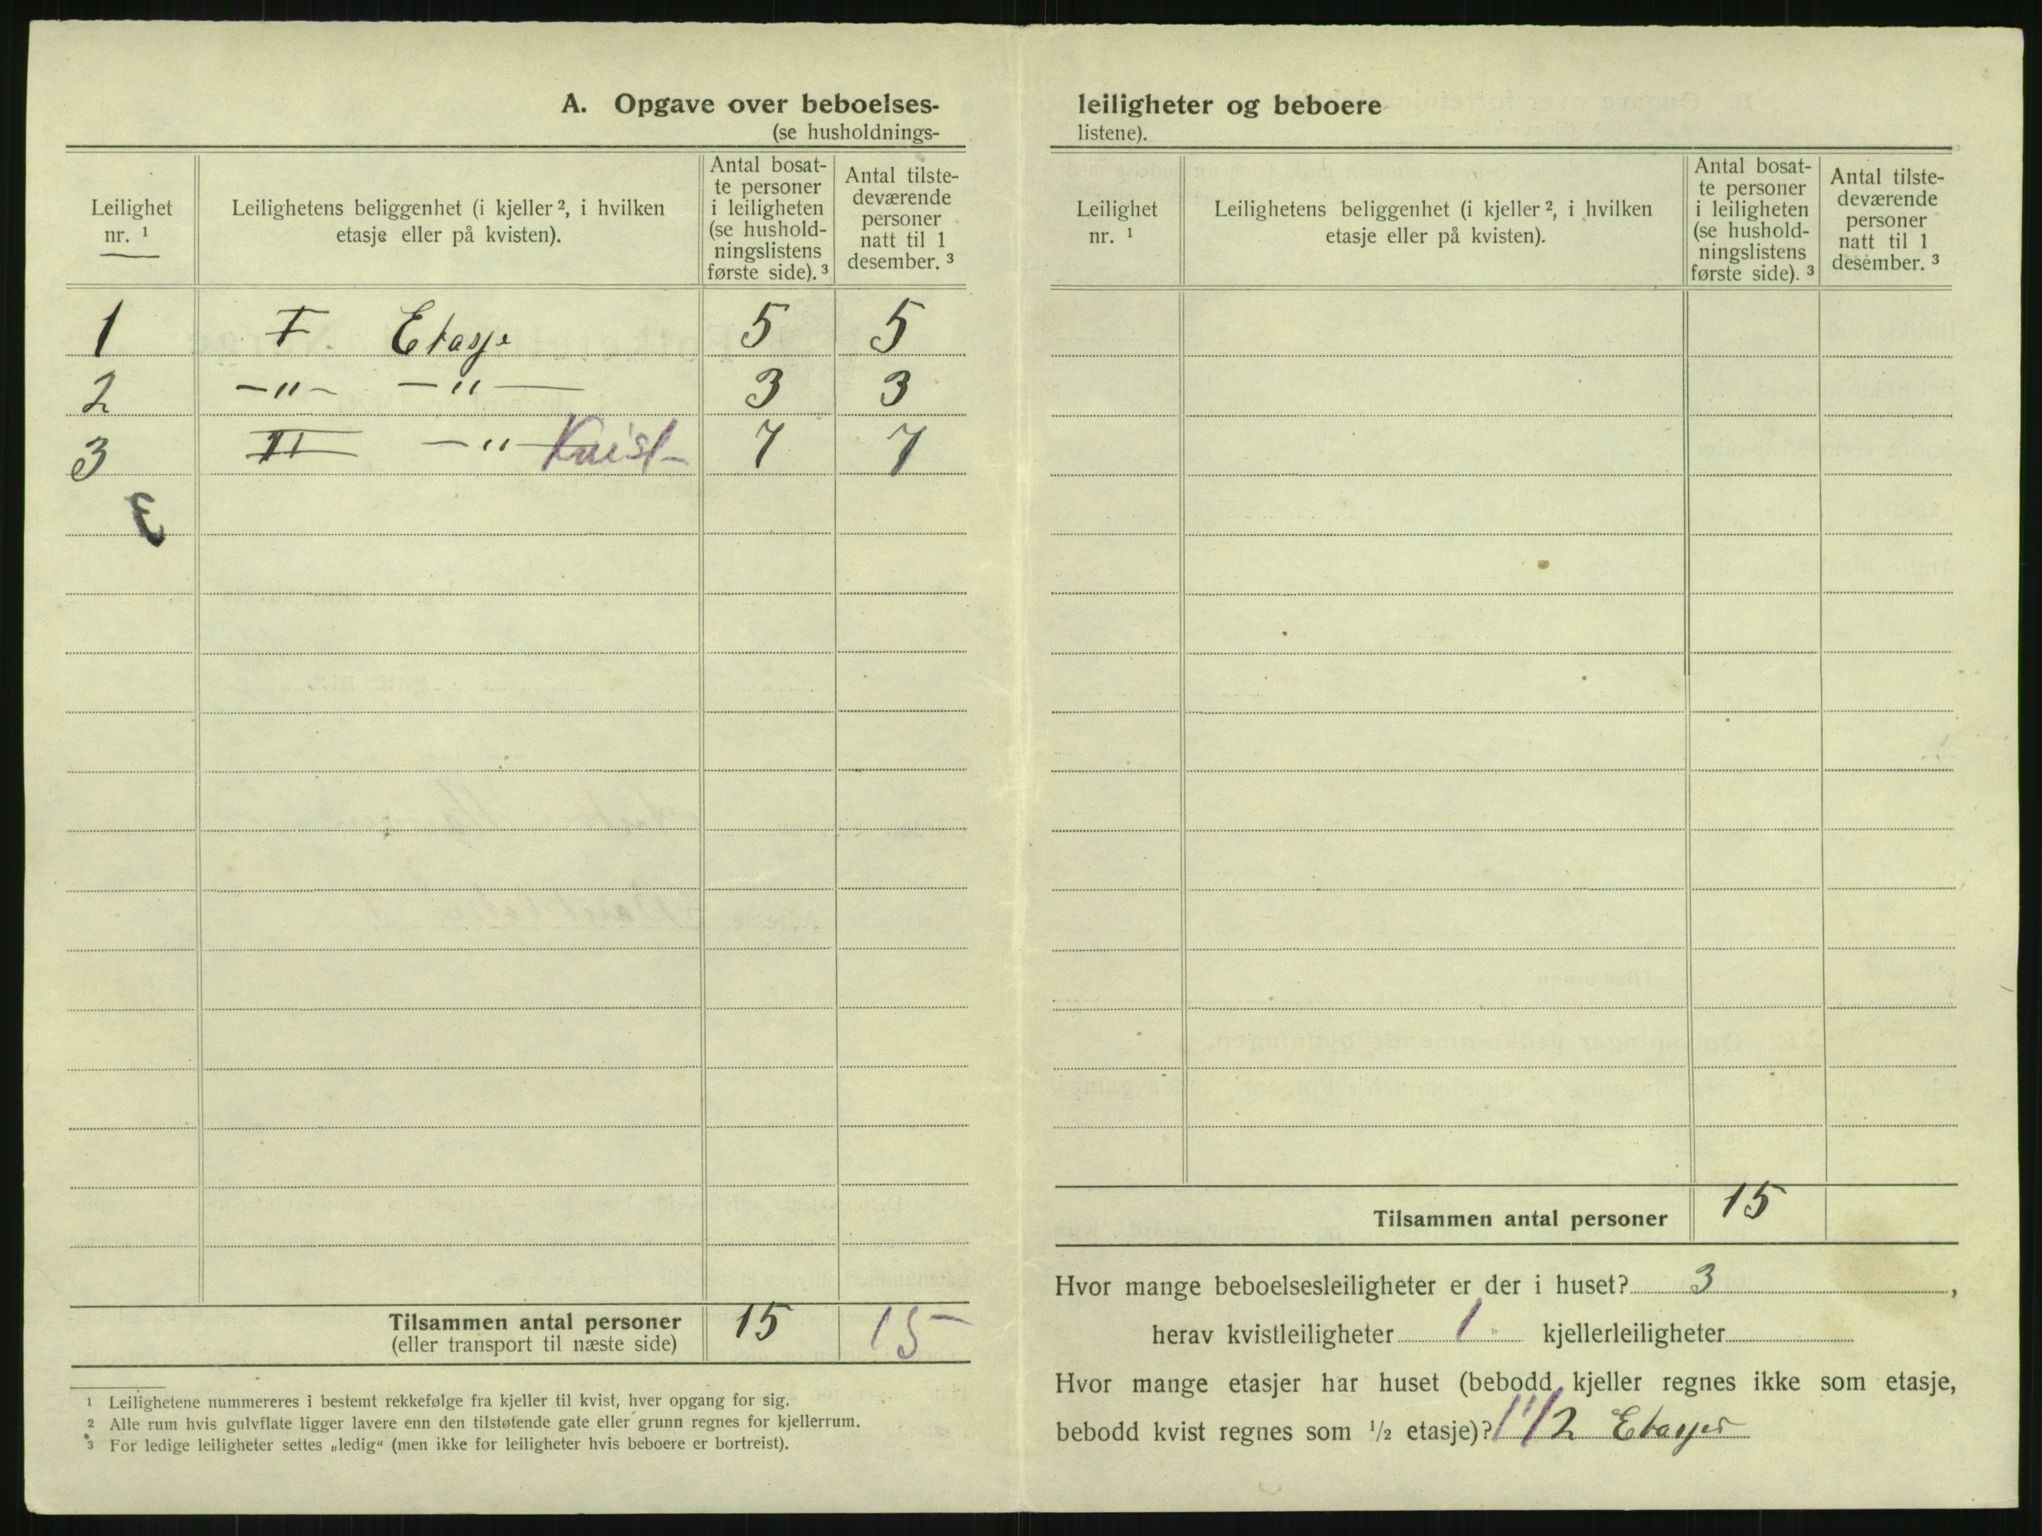 A. Opgave over beboelses-
(se husholdnings-
Leilighet
nr. ¹
Leilighetens beliggenhet (i kjeller ², i hvilken
etasje eller på kvisten).
Antal bosat-
te personer
i leiligheten
(se hushold-
ningslistens
første side). ³
Antal tilste-
deværende
personer
natt til 1
desember. ³
1 I Etasje 5 5
2 -"- -"- 3 3
3 II -"- Kvist 7 7
3
Tilsammen antal personer 15 15
(eller transport til næste side)
¹ Leilighetene nummereres i bestemt rekkefølge fra kjeller til kvist, hver opgang for sig.
² Alle rum hvis gulvflate ligger lavere enn den tilstøtende gate eller grunn regnes for kjellerrum.
³ For ledige leiligheter settes „ledig“ (men ikke for leiligheter hvis beboere er bortreist).
leiligheter og beboere
listene).
Leilighet
nr. ¹
Leilighetens beliggenhet (i kjeller ², i hvilken
etasje eller på kvisten).
Antal bosat-
te personer
i leiligheten
(se hushold-
ningslistens
første side). ³
Antal tilste-
deværende
personer
natt til 1
desember. ³
Tilsammen antal personer 15
Hvor mange beboelsesleiligheter er der i huset? 3,
herav kvistleiligheter 1 kjellerleiligheter
Hvor mange etasjer har huset (bebodd kjeller regnes ikke som etasje,
bebodd kvist regnes som ½ etasje)? 1 1/2 Etasjer